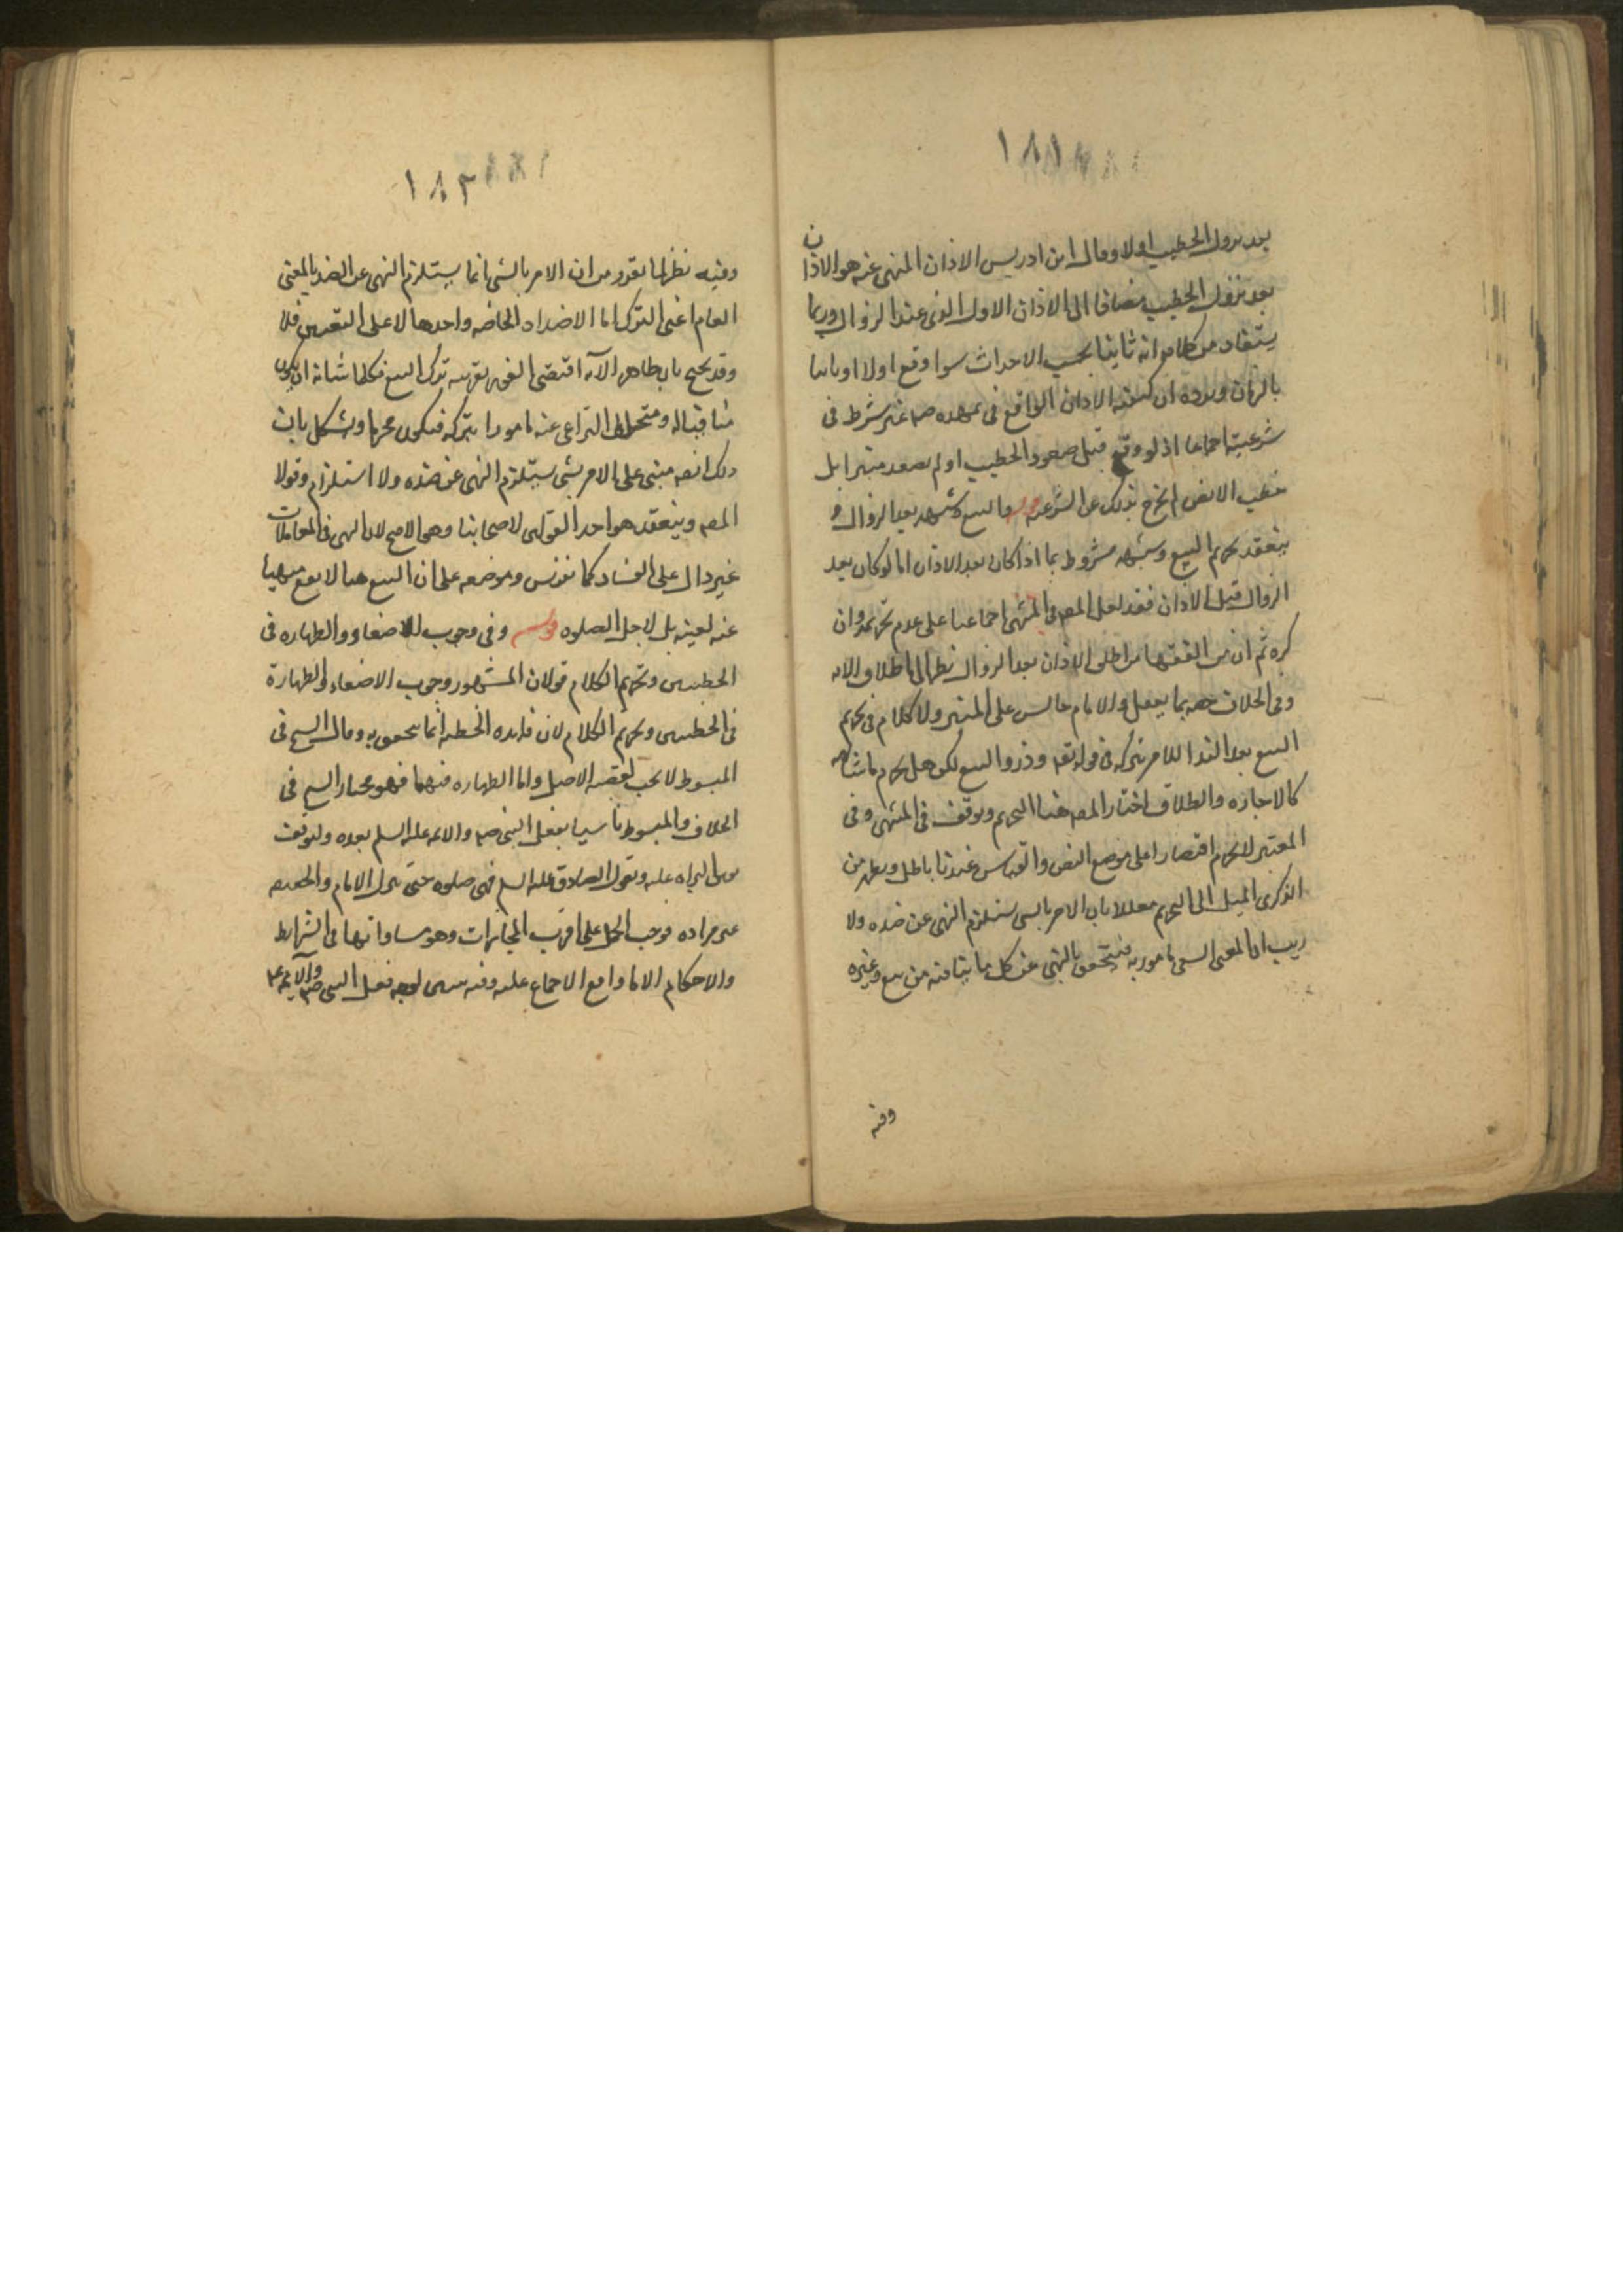 ١٨١
بعد نزول الخطيب اولا وقال ابن ادريس الاذان المنهى عنه هو الاذان
بعد نزول الخطيب مضافا الى الاذان الاول الذى عند الزوال وربما
يستفاد من كلامه انه ثانيا بحسب الاحداث سوا وقع اولا او ثانيا
بالزمان ويرده ان كيفيه الاذان الواقع فى عهده صم غير شرط فى
شرعيته اجماعا اذ لو وقع قبل صعود الخطيب او لم يصعد منبرا بل
خطب الارض لم يخرج بذلك عن الشرعيه والبيع وشبهه بعد الزوال و
ينعقد تحريم البيع وشبهه مشروط بما اذا كان بعد الاذان اما لو كان بعد
الزوال قبل الاذان فقد نقل المصه فى المنتهى اجماعنا على عدم تحريمه وان
كره ثم ان من الفقها من اطلق الاذان بعد الزوال نظرا الى اطلاق الايه
وفى الخلاف خصه بما يفعل والامام جالس على المنبر ولا كلام فى تحريم
البيع بعد الندا للامر بتركه فى قوله تعه وذروا البيع لكن هل يحرم ما شابهه
كالاجاره والطلاق اختار المصه هنا التحريم وتوقف فى المنتهى وفى
المعتبر لا يحرم اقتصارا على موضع النص والقياس عندنا باطل ويظهر من
الذكرى الميل الى التحريم معللا بان الامر بالشى يستلزم النهى عن ضده ولا
ريب ان المعنى السعى مامور به فيتحقق بالنهى عن كل ما ينافيه من بيع وغيره
وفيه
١٨٢
وفيه نظر لما تقرر من ان الامر بالشى انما يستلزم النهى عن الضد بالمعنى
العام اعنى الترك اما الاضداد الخاصه واحدها لا على التعيين فلا
وقد يحتج بان ظاهر الآيه اقتضى الفور بقرينه ترك البيع فكلما شانه ان يكون
منافيا له ومتحقق التراخى عنه مامورا بتركه فيكون محرما ويشكل بان
ذلك انصه مبنى على الامر بشى يستلزم النهى عن ضده ولا استلزام وقولا
المصه وينعقد هو احد القولين لاصحابنا وهو الاصح لان النهى فى المعاملات
غير دال على الفساد كما نؤسس وموضعه على ان البيع هنا لا يقع منهيا
عنه لعينه بل لاجل الصلوه قوله وفى وجوب الاصغاء والطهاره فى
الخطبتين وتحريم الكلام قولان المشهور وجوب الاصغاء والطهارة
فى الخطبتين وتحريم الكلام لان فايده الخطبه انما تتحقق به وقال الشيخ فى
المبسوط لا يجب لقضيه الاصل واما الطهاره فيهما فهو مختار الشيخ فى
الخلاف والمبسوط تاسيا بفعل النبى صم والائمه عليهم السلم بعده ولتوقف
يقين البراءه عليه وبقول الصادق عليه السلم فهى صلوه حتى ينزل الامام والحقيقه
غير مراده فوجب الحمل على اقرب المجازات وهو مساواتها فى الشرايط
والاحكام الا ما وقع الاجماع عليه وفيه لوجه فعل النبى صم والائمه عم